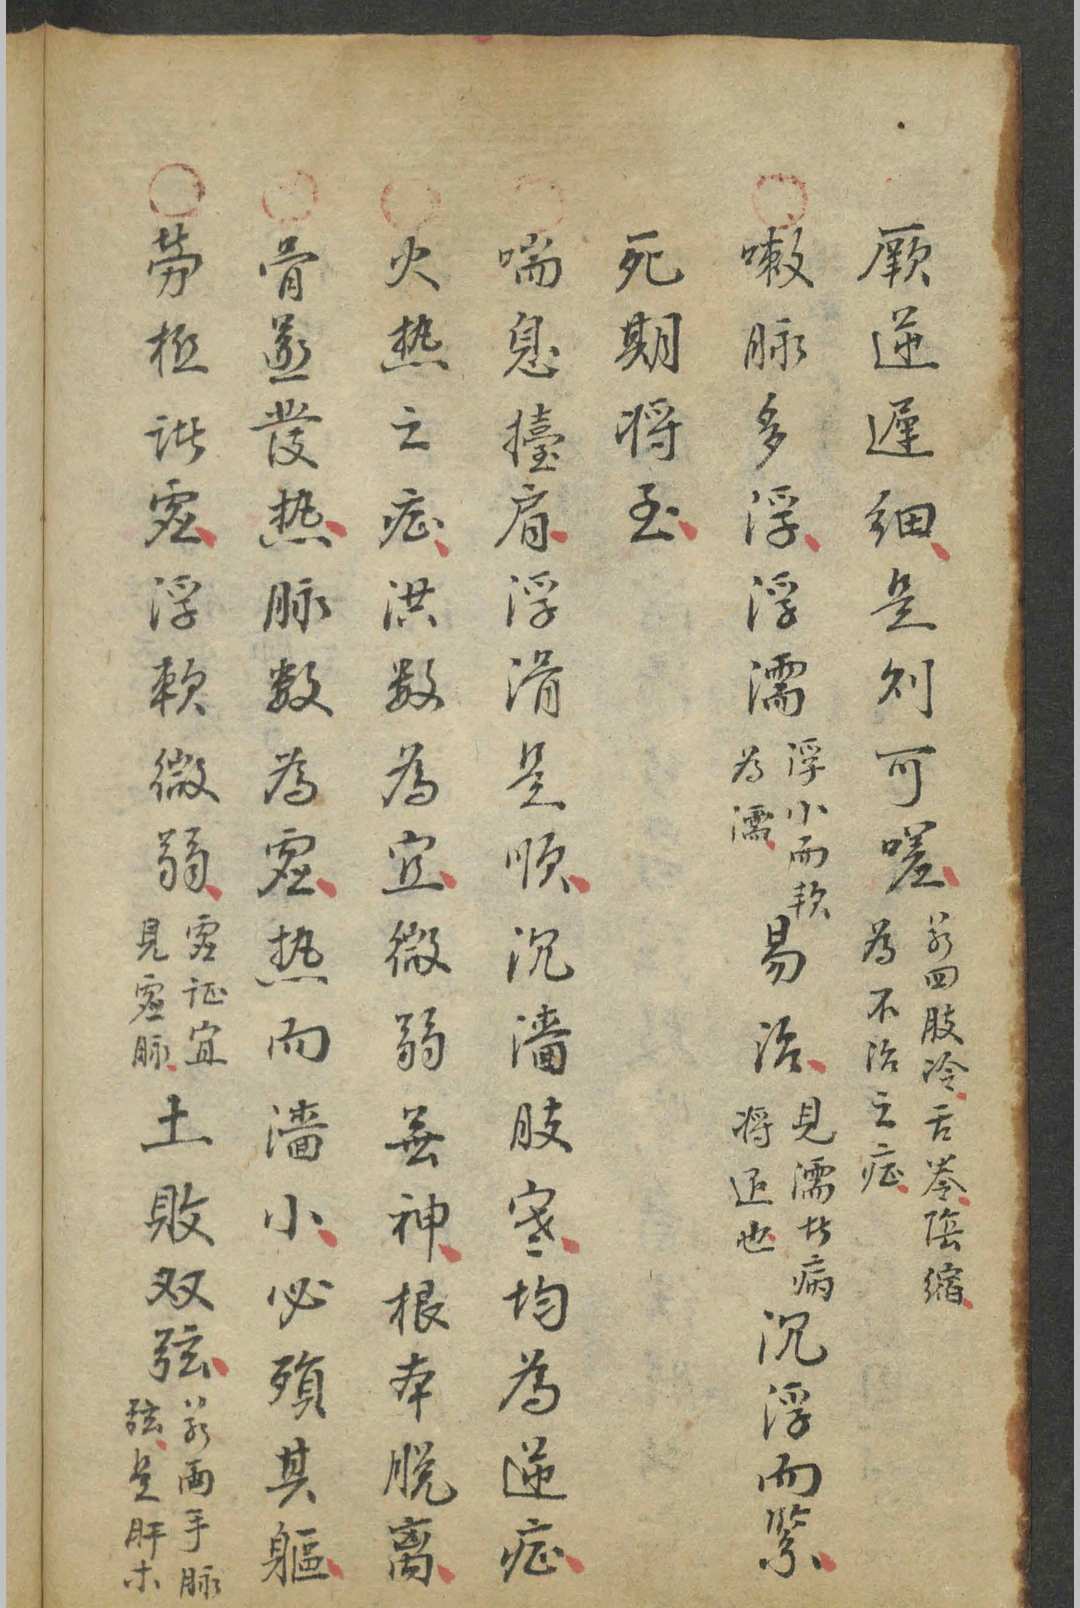 厥逆遲細是則可嗟若四肢冷舌卷陰縮為不治之症
嗽脉多浮浮濡浮小而軟為濡易治見濡者病將退也沉浮而緊
死期將至
喘息擡肩浮滑是順沉濇肢寒均為逆症
火热之症洪数為宜微弱無神根本脱离
骨蒸發热脉数為虚热而濇小必殞其軀
劳極諸虚浮軟微弱虚证宜見虚脉土敗双弦若両手脉弦是肝木